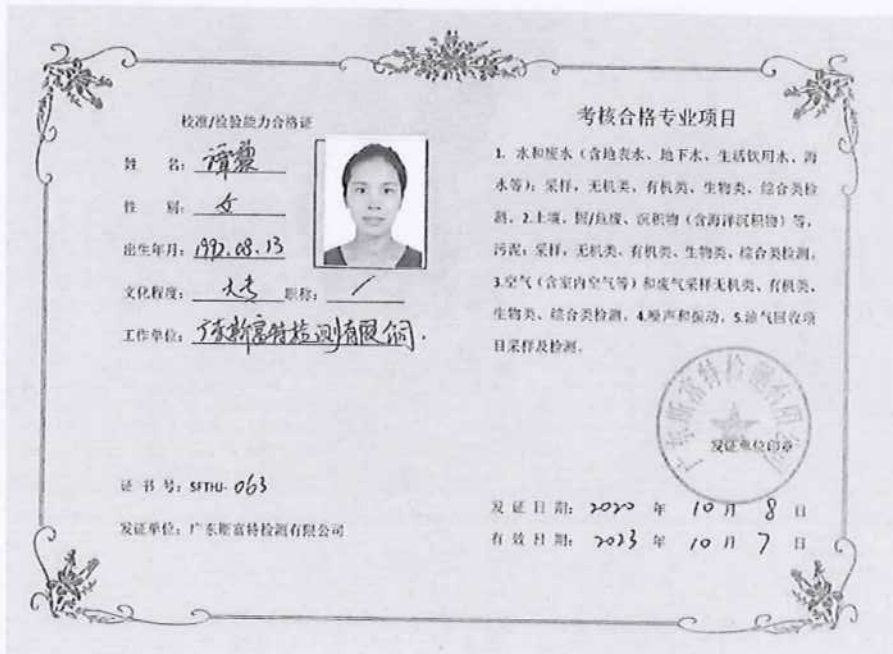 校准/检验能力合格证
姓 名: 谭黎
性 别: 女
出生年月: 1992.08.13
文化程度: 大专 职称: /
工作单位: 广东斯富特检测有限公司.
证 书 号: SFTHJ- 063
发证单位: 广东斯富特检测有限公司
考核合格专业项目
1. 水和废水(含地表水、地下水、生活饮用水、海
水等):采样,无机类、有机类、生物类、综合类检
测。2.土壤、固/危废、沉积物(含海洋沉积物)等,
污泥:采样,无机类、有机类、生物类、综合类检测。
3.空气(含室内空气等)和废气采样无机类、有机类、
生物类、综合类检测。4.噪声和振动。5.油气回收项
目采样及检测。
广东斯富特检测有限公司
发证单位印章
发 证 日 期: 2020 年 10 月 8 日
有 效 日 期: 2023 年 10 月 7 日